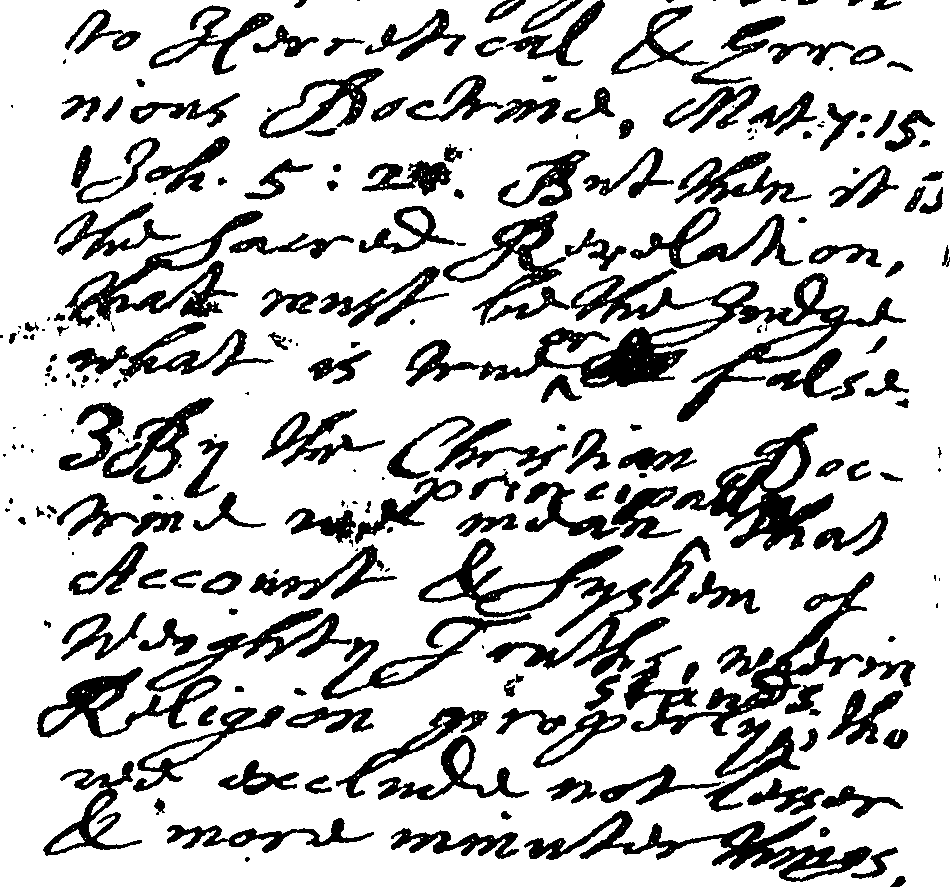 to Herretical & Erro-
nious Doctrine, Mat. 7:15.
1 Joh. 5:2. But then it is
the Sacred Revelation,
that must be the Judge,
what is true or false.
3 By the Christian Doc-
trine we principally mean that
Account & System of
Weighty Truths, wherin
Religion properly stands, tho
we exclude not lesser
& more minuter things,